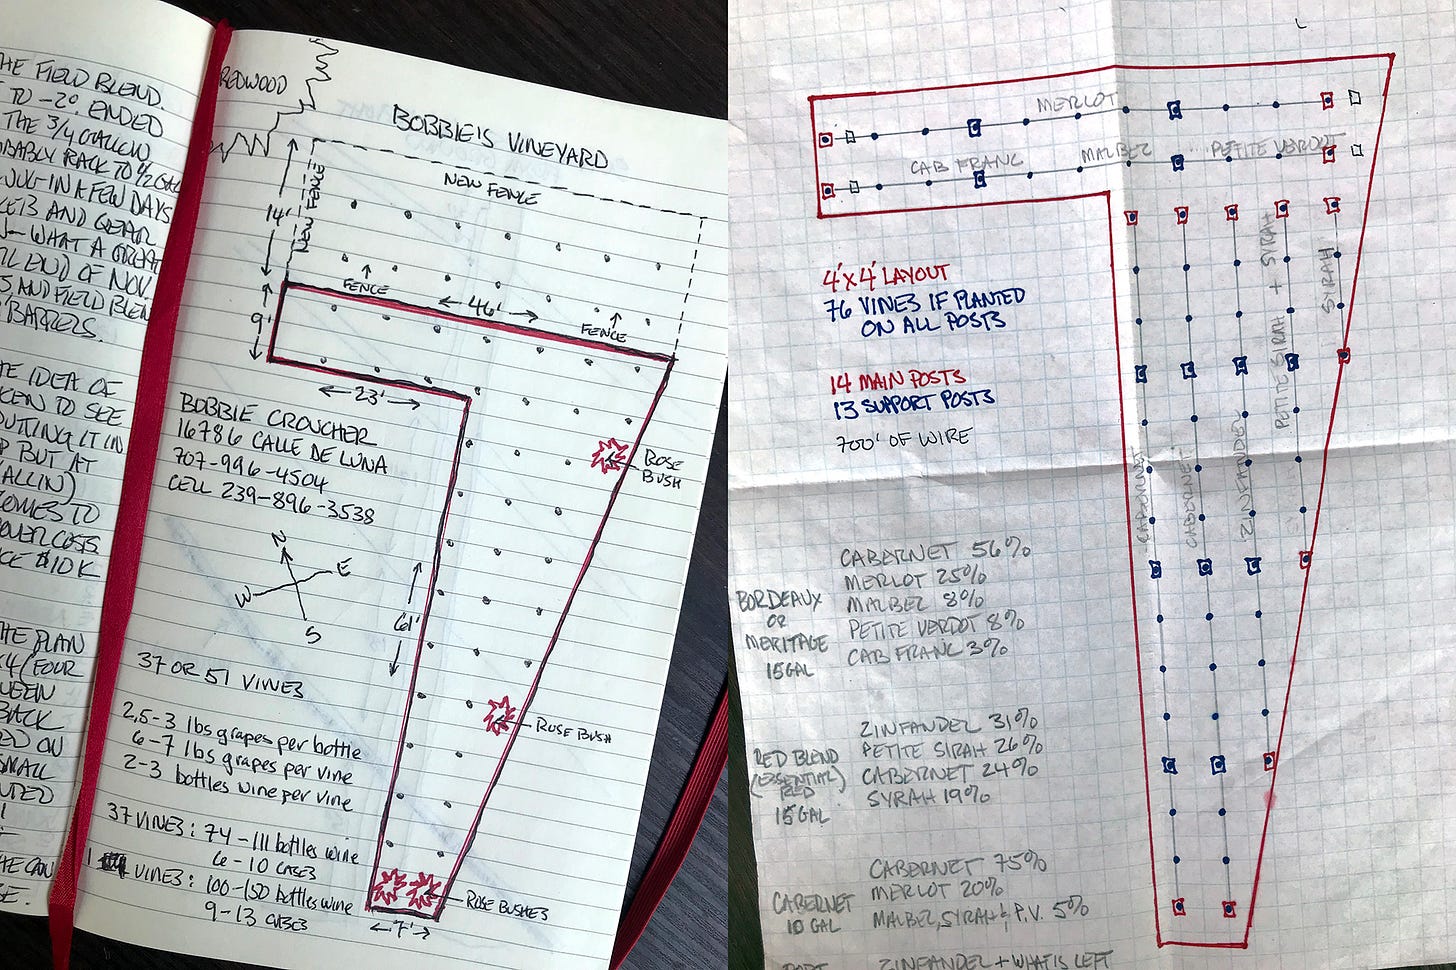 HE FIELD BLEND.
TO -2° ENDED
THE 3/4 GALLON
OBABLY RACK TO 1/2 GAL
JUG IN A FEW DAYS
AND GEAR
WHAT A GREAT
END OF NOV.
S AND FIELD BLEN
BARRELS.
E IDEA OF
KEN TO SEE
PUTTING IT IN
P BUT AT
ALL IN)
COMES TO
OVER COSTS.
CE $10K
HE PLAN
(FOUR
WEEN
BACK
ED ON
SMALL
NTED
HE CAN
SE.
REDWOOD
BOBBIE'S VINEYARD
NEW FENCE
NEW FENCE
14'
FENCE
46'
FENCE
9'
23'
BOBBIE CROUCHER
16786 CALLE DE LUNA
707-996-4504
CELL 239-896-3538
ROSE BUSH
N
E
W
S
61'
37 OR 51 VINES
ROSE BUSH
2.5-3 lbs grapes per bottle
6-7 lbs grapes per vine
2-3 bottles wine per vine
37 VINES: 74-111 bottles wine
6-10 CASES
VINES: 100-150 bottles wine
9-13 CASES
ROSE BUSHES
7'
MERLOT
CAB FRANC MALBEC PETITE VERDOT
4'x4' LAYOUT
76 VINES IF PLANTED
ON ALL POSTS
14 MAIN POSTS
13 SUPPORT POSTS
700' OF WIRE
CABERNET
CABERNET
ZINFANDEL
PETITE SIRAH + SIRAH
SYRAH
BORDEAUX
OR
MERITAGE
15 GAL
CABERNET 56%
MERLOT 25%
MALBEC 8%
PETITE VERDOT 8%
CAB FRANC 3%
RED BLEND
(ESSENTIAL)
RED
15 GAL
ZINFANDEL 31%
PETITE SIRAH 26%
CABERNET 24%
SYRAH 19%
CABERNET
10 GAL
CABERNET 75%
MERLOT 20%
MALBEC, SYRAH & P.V. 5%
PORT
ZINFANDEL + WHAT IS LEFT